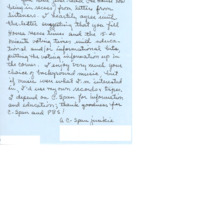 being in error, from letters from
listeners. I heartily agree with
the letter suggesting that you fill
House recess times and the 15-20
minute voting times with educa-
tional and/or informational bits,
putting the voting information up in
the corner. I enjoy very much your
choice of background music, but
if music were what I'm interested
in, I'd use my own records & tapes.
I depend on C-Span for information
and education; thank goodness for
C-Span and PBS!
A C-Span junkie